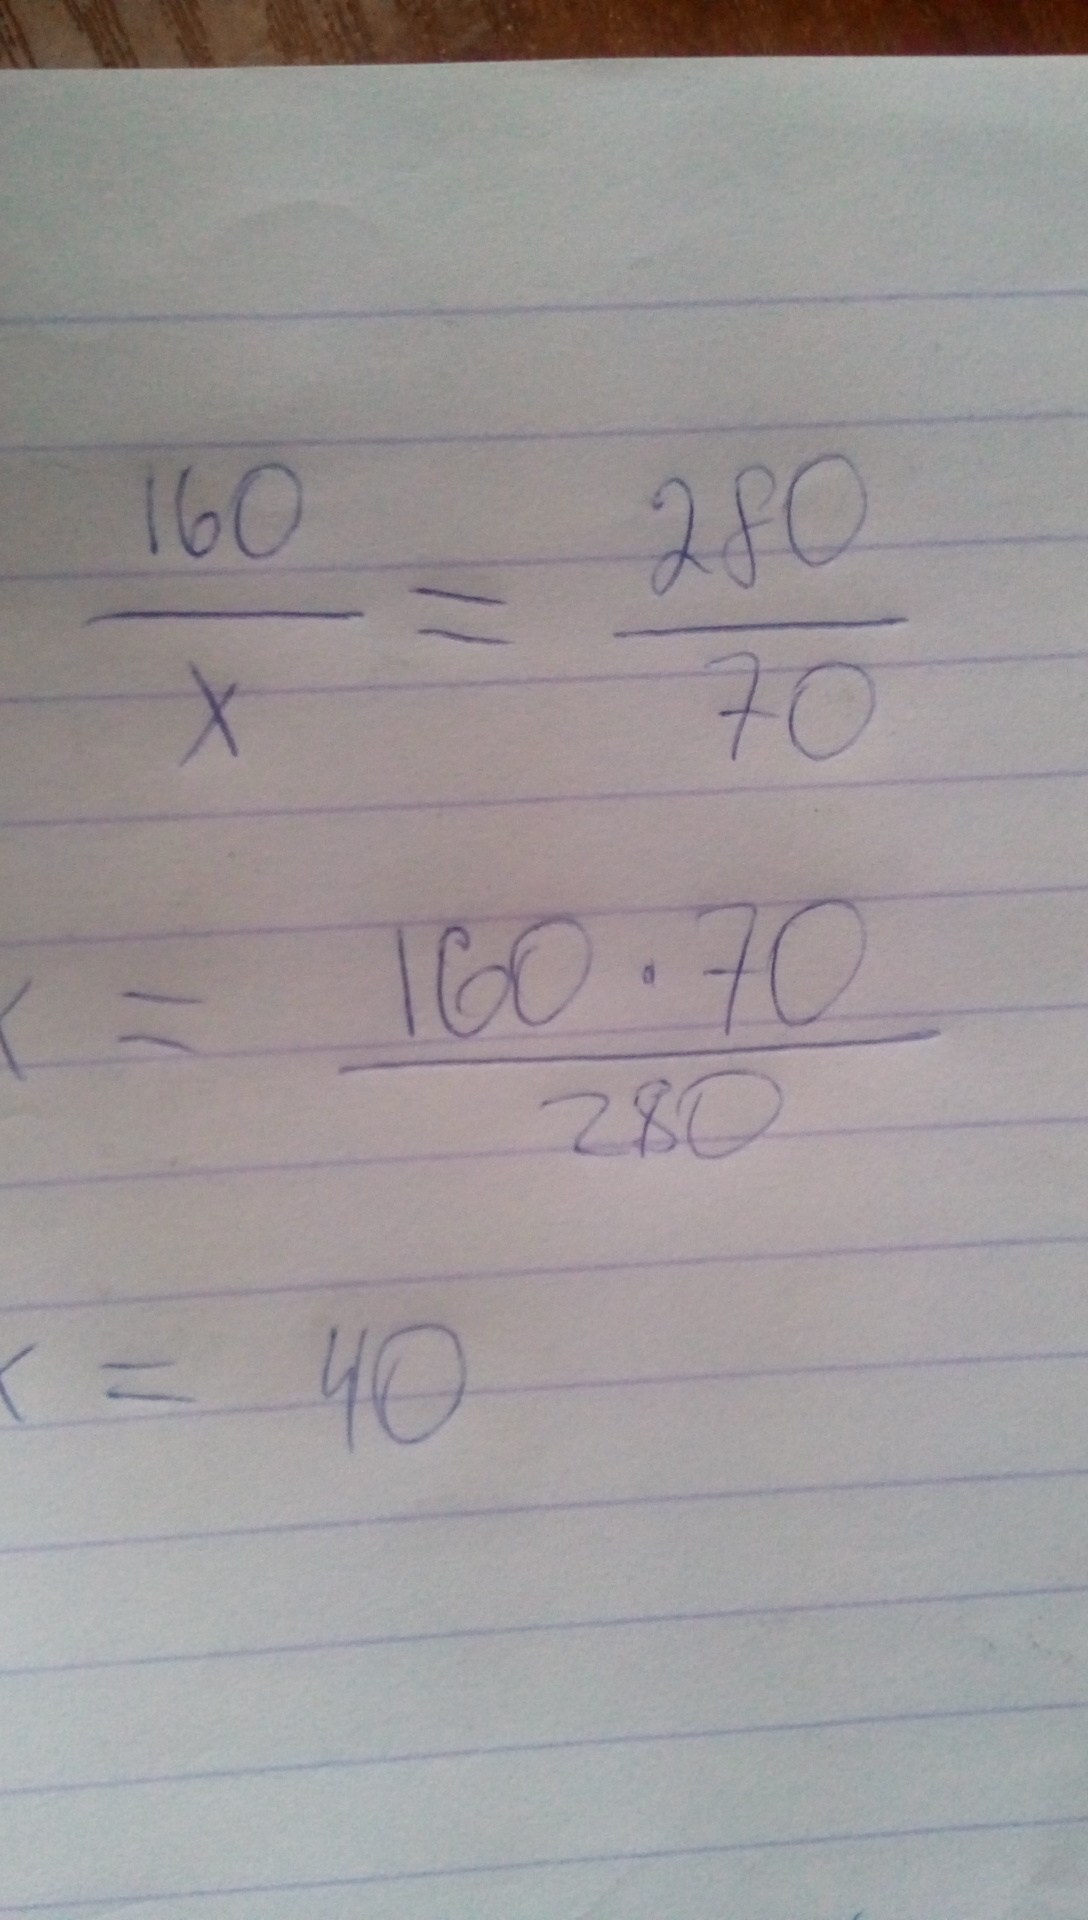 160/x = 280/70
x = 160 · 70/280
x = 40